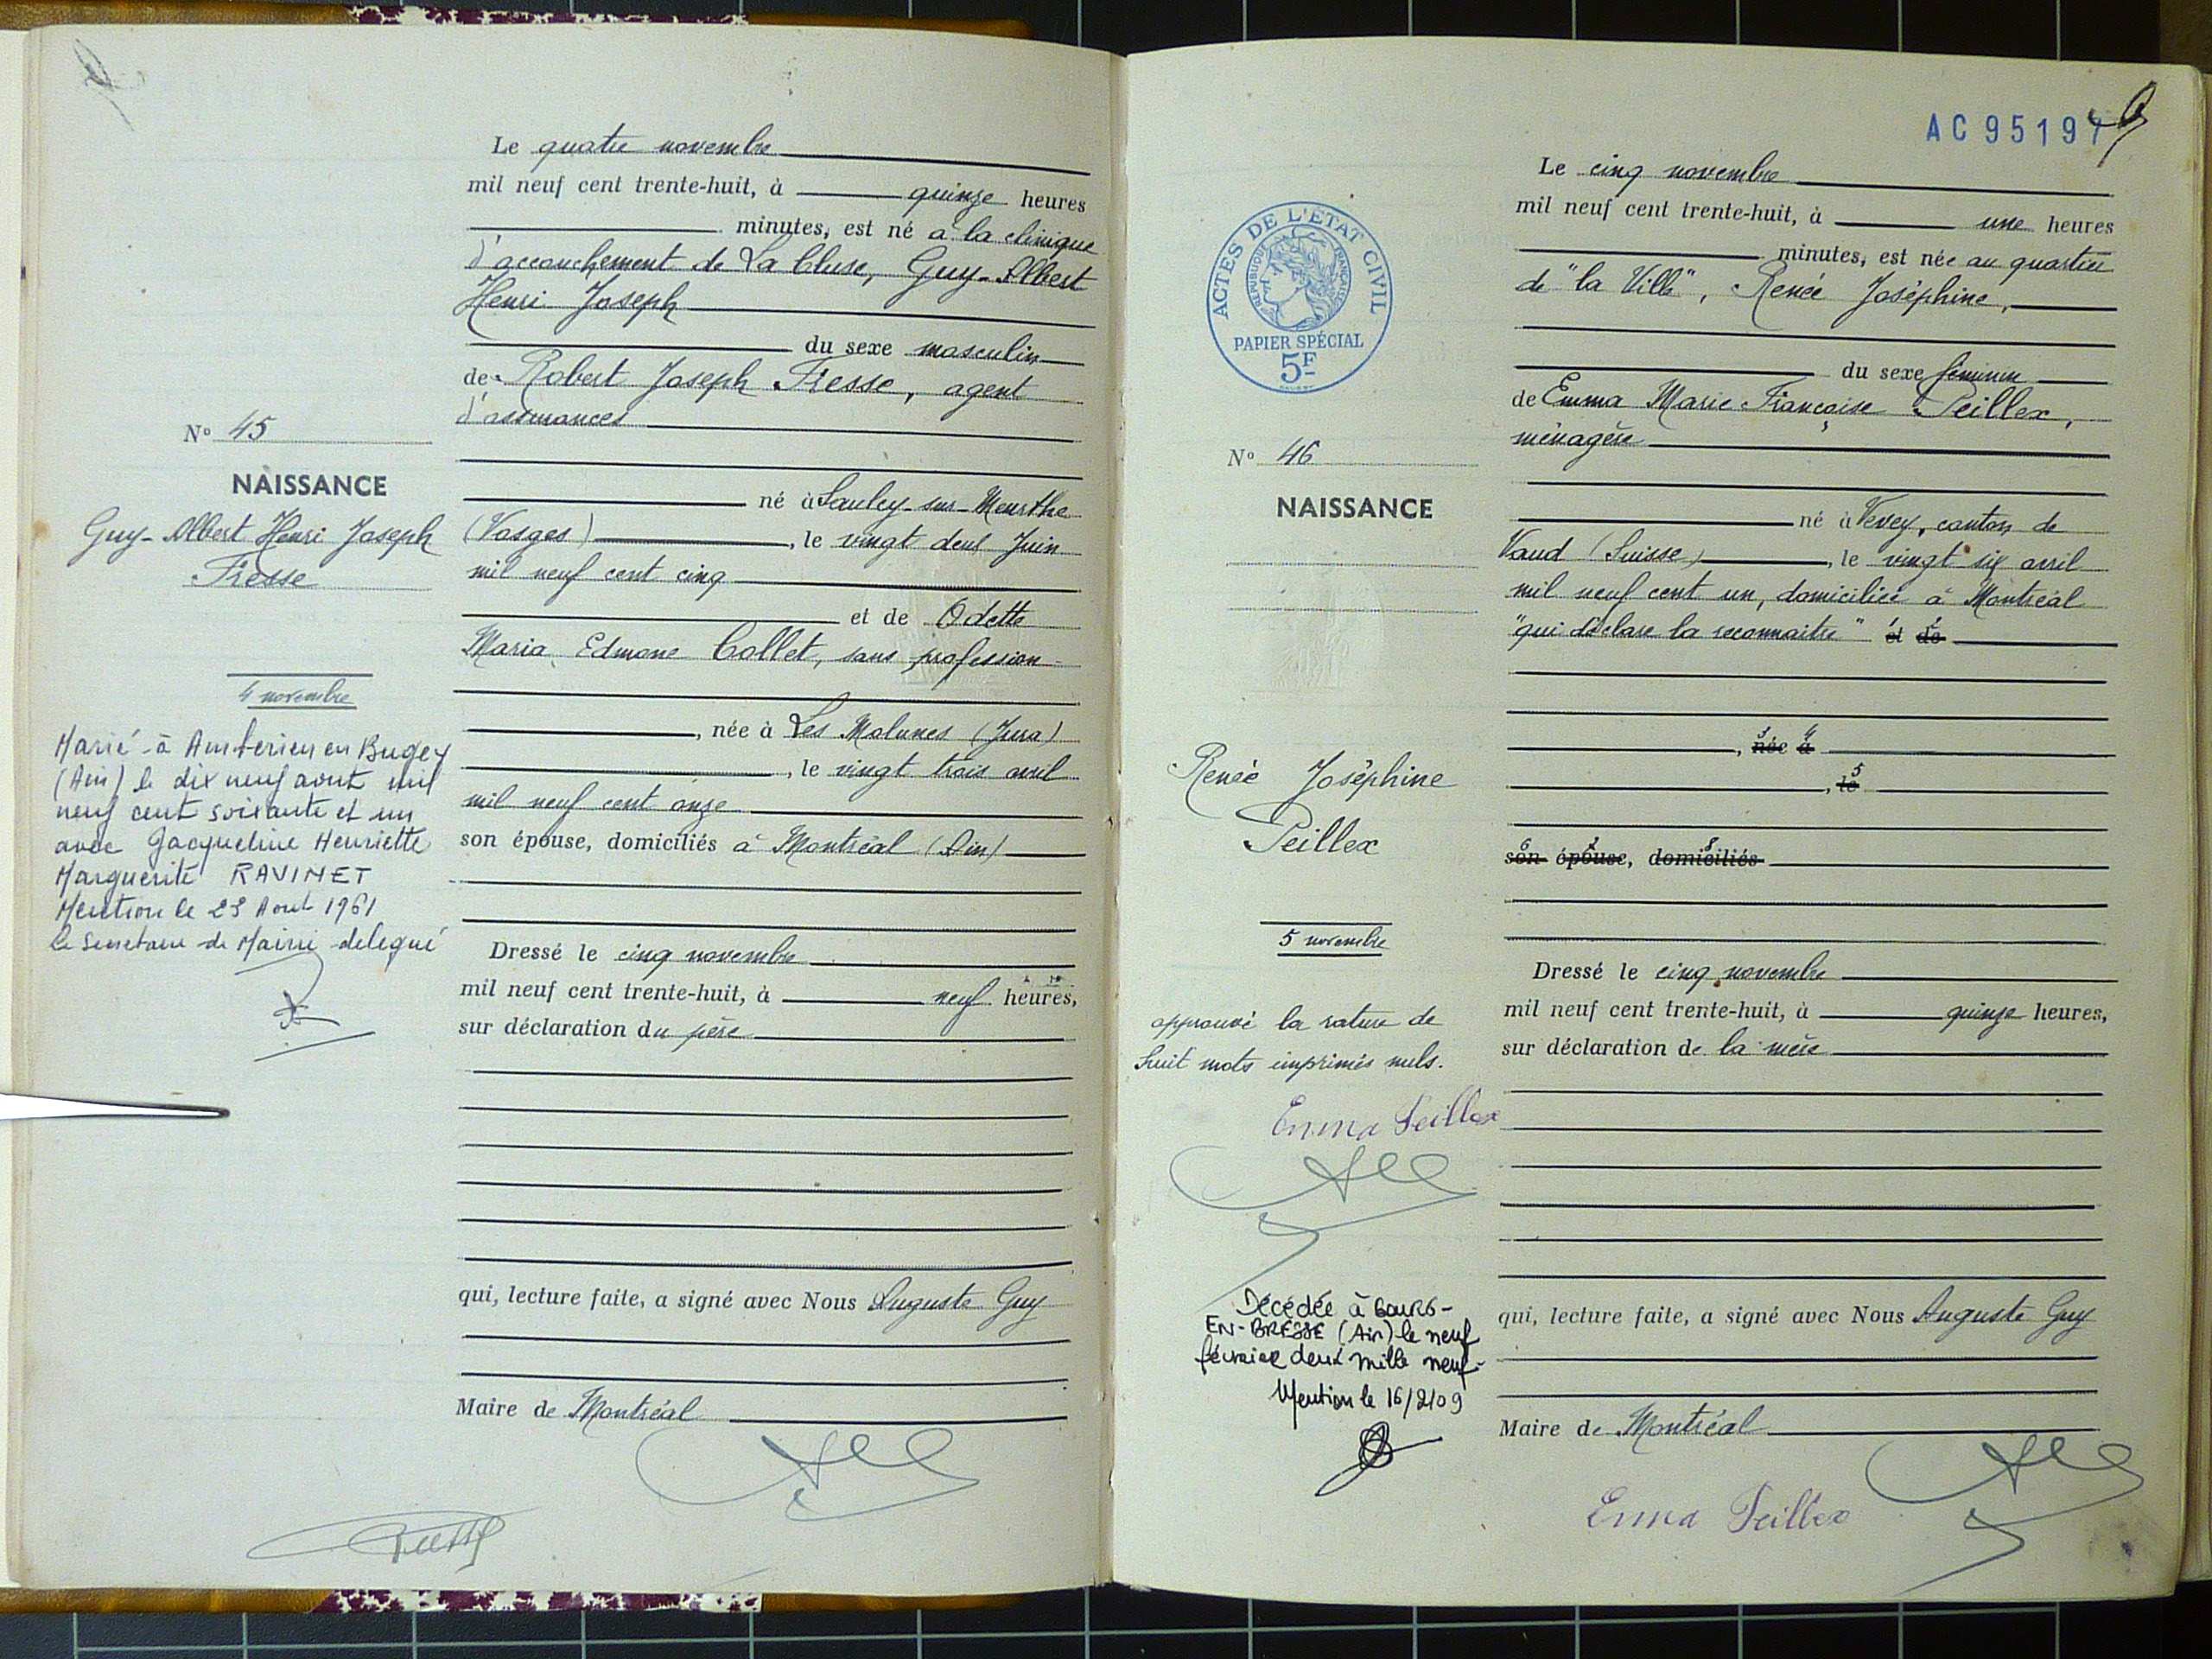 Le quatre novembre
mil neuf cent trente-huit, à quinze heures
minutes, est né à la clinique
d'accouchement de La Cluse, Guy-Albert
Henri Joseph
du sexe masculin
de Robert Joseph Fresse, agent
d'assurances
né à Saulcy-sur-Meurthe
(Vosges), le vingt deux Juin
mil neuf cent cinq
et de Odette
Maria Edmone Collet, sans profession
, née à Les Molunes (Jura)
, le vingt trois avril
mil neuf cent onze
son épouse, domiciliés à Montréal (Ain)
Dressé le cinq novembre
mil neuf cent trente-huit, à neuf heures,
sur déclaration du père
qui, lecture faite, a signé avec Nous Auguste Guy
Maire de Montréal
N° 45
NAISSANCE
Guy-Albert Henri Joseph
Fresse
4 novembre
Marié à Amberieu en Bugey
(Ain) le dix neuf aout mil
neuf cent soixante et un
avec Jacqueline Henriette
Marguerite RAVINET
Mention le 23 Aout 1961
le Secretaire de Mairie delegué
AC 95197
Le cinq novembre
mil neuf cent trente-huit, à une heures
minutes, est née au quartier
de "la Ville", Renée Joséphine,
du sexe féminin
de Emma Marie Françoise Peillex,
ménagère
né à Vevey, canton de
Vaud (Suisse), le vingt six avril
mil neuf cent un, domiciliée à Montréal
"qui déclare la reconnaitre" et de
, née à
, le
son épouse, domiciliés
Dressé le cinq novembre
mil neuf cent trente-huit, à quinze heures,
sur déclaration de la mère
qui, lecture faite, a signé avec Nous Auguste Guy
Maire de Montréal
Emma Peillex
ACTES DE L'ETAT CIVIL
REPUBLIQUE FRANÇAISE
PAPIER SPÉCIAL
5F
N° 46
NAISSANCE
Renée Joséphine
Peillex
5 novembre
approuvé la rature de
huit mots imprimés nuls.
Emma Peillex
Décédée à BOURG-
EN-BRESSE (Ain) le neuf
février deux mille neuf-
Mention le 16/2/09